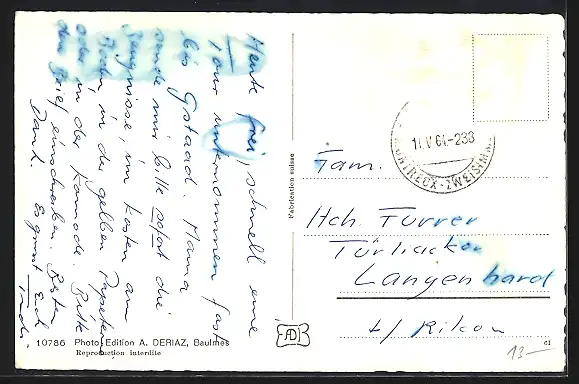 Heute frei, schnell eine
Tour unternommen fast
bis Gstaad. Mama
sende mir bitte sofort die
Zeugnisse, im Kasten am
Boden, in der gelben Papeterie
oder in der Komode. Bitte
den Brief einschreiben. Besten
Dank. Es grüsst Euch
Trudi
10786 Photo Edition A. DERIAZ, Baulmes
Reproduction interdite
Fabrication suisse
AD
11.V.64-233
MONTREUX-ZWEISIMMEN
Fam.
Hch. Furrer
Türliacker
Langenhard
b/ Rikon
13.—
61